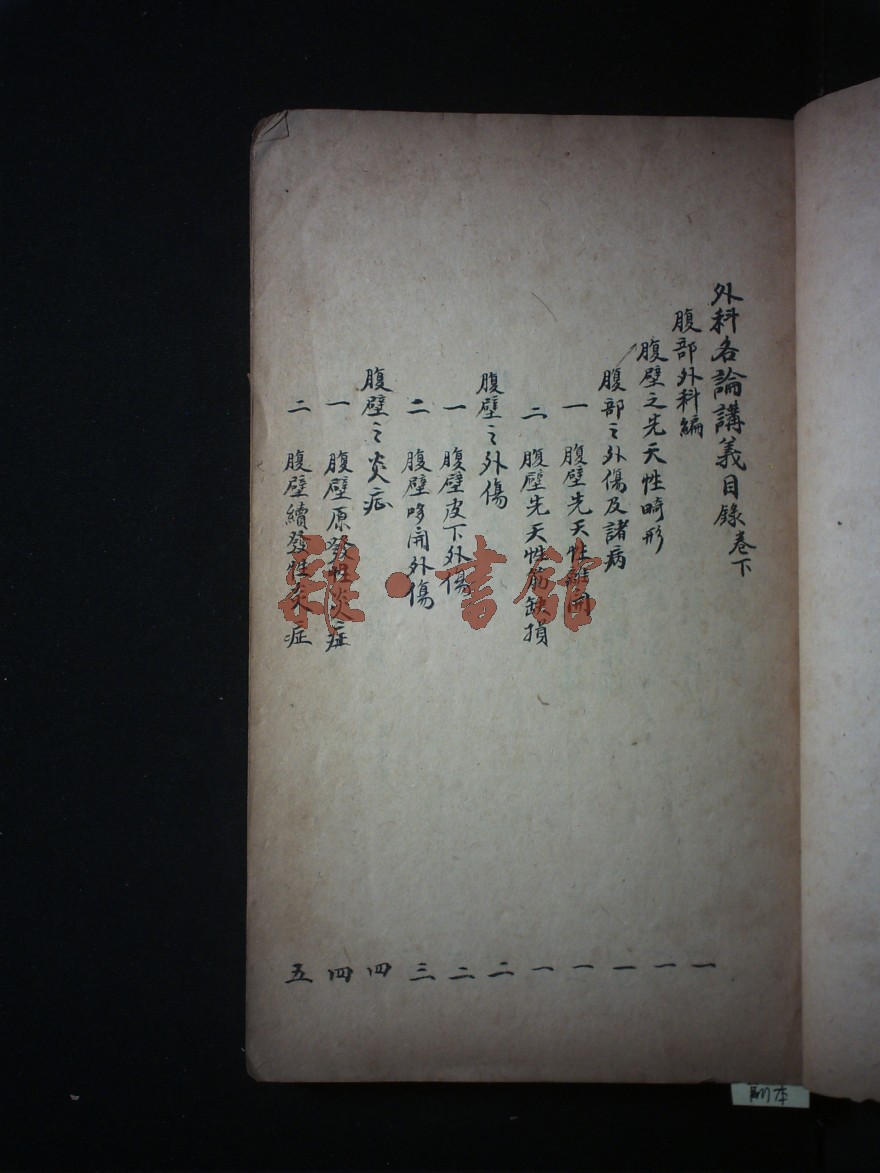 外科各論講義目錄卷下
腹部外科編 一
腹壁之先天性畸形 一
腹部之外傷及諸病 一
一 腹壁先天性離開 一
二 腹壁先天性筋缺損 一
腹壁之外傷 二
一 腹壁皮下外傷 二
二 腹壁哆開外傷 三
腹壁之炎症 四
一 腹壁原發性炎症 四
二 腹壁續發性炎症 五
書館
副本